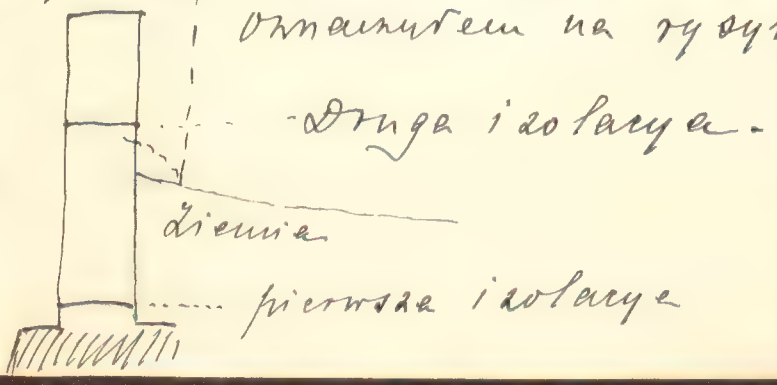 oznaczyłem na rysun
Druga izolacya.
Ziemia
pierwsza izolacya